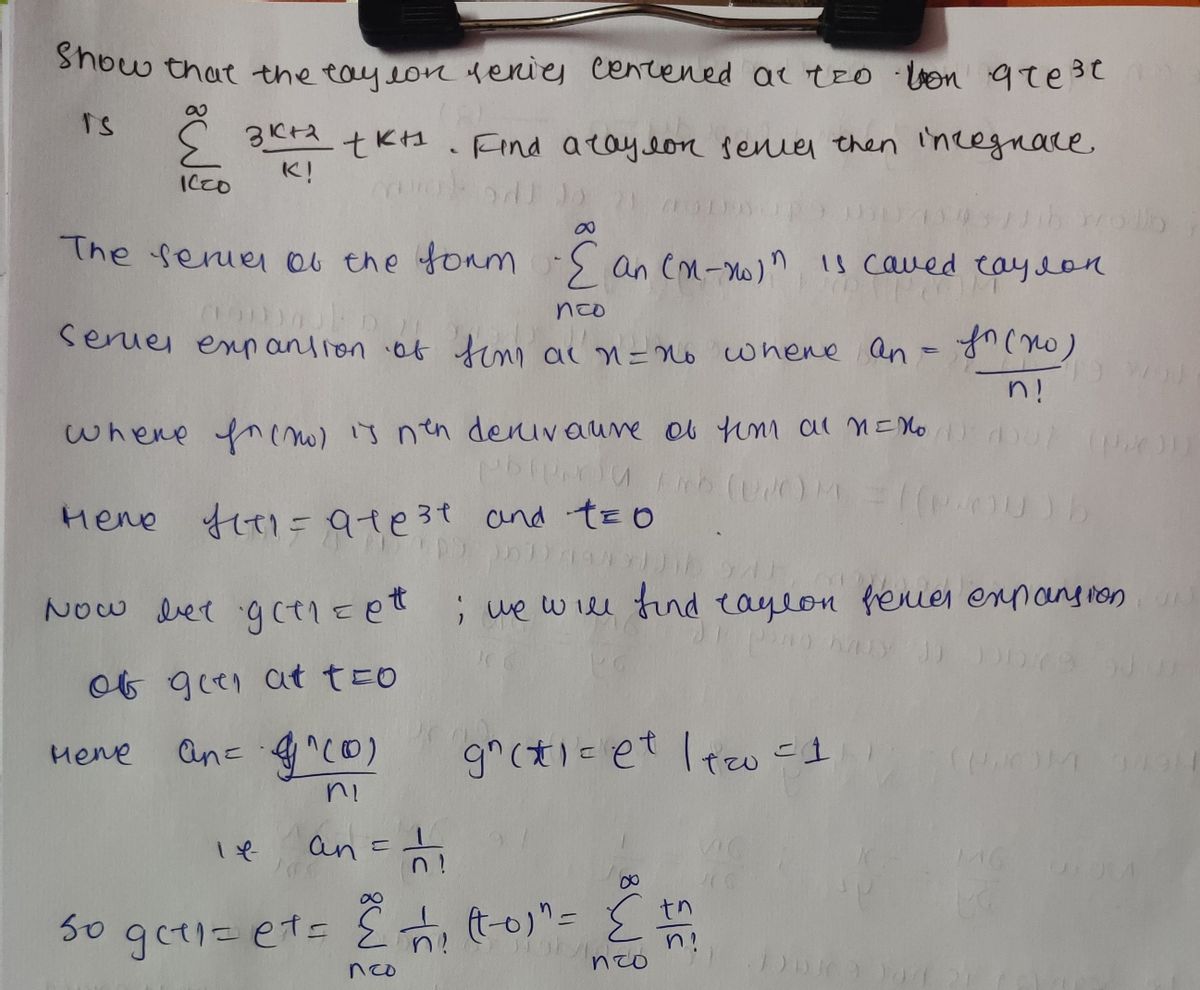 Show that the taylor series centered at t=0 for 9te^{3t}
is \sum_{k=0}^{∞} \frac{3^{k+2}}{k!} t^{k+1} . Find a taylor series then integrate
The series of the form \sum_{n=0}^{∞} an (x-x_0)^n is called taylor
series expansion of f(x) at x=x_0 where an = \frac{f^n(x_0)}{n!}
where f^n(x_0) is nth derivative of f(x) at x=x_0
Here f(t) = 9te^{3t} and t=0
Now let g(t) = e^t ; we will find taylor series expansion
of g(t) at t=0
Here an = \frac{g^n(0)}{n!} g^n(t) = e^t |_{t=0} = 1
ie an = \frac{1}{n!}
So g(t) = e^t = \sum_{n=0}^{∞} \frac{1}{n!} (t-0)^n = \sum_{n=0}^{∞} \frac{t^n}{n!}